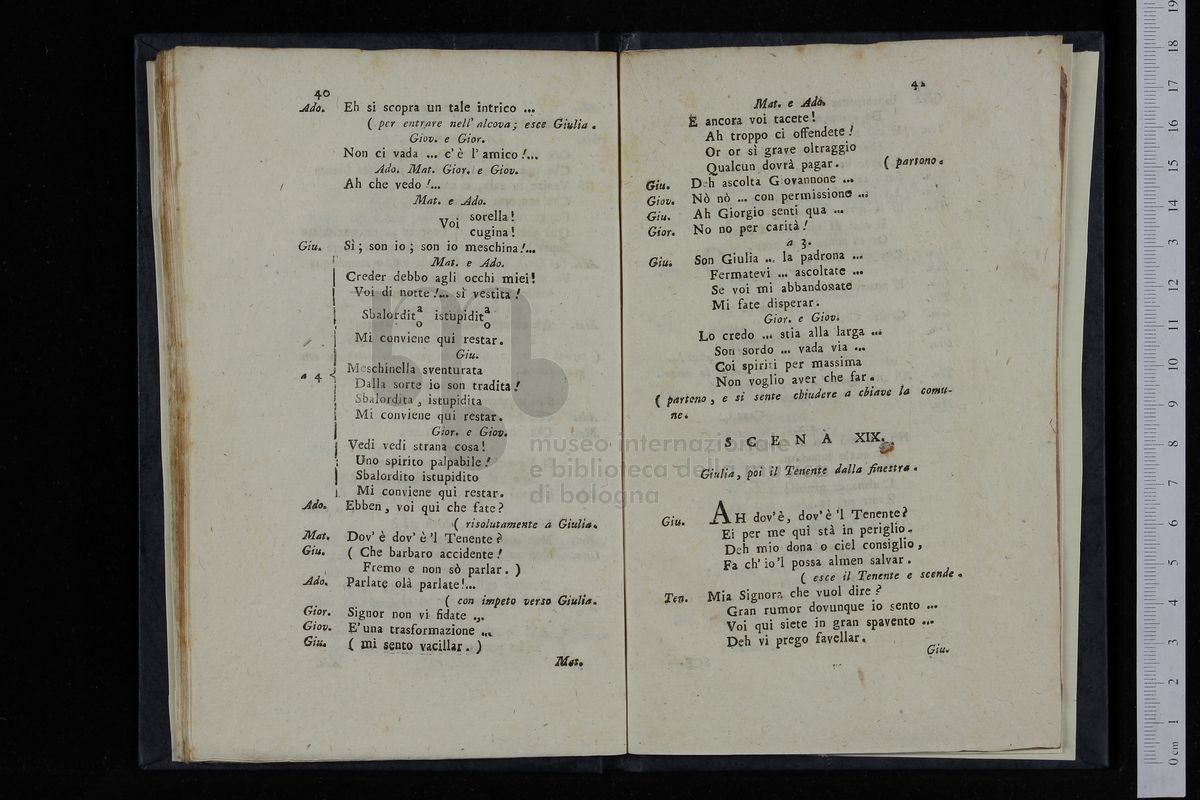 40
Ado. Eh si scopra un tale intrico ...
( per entrare nell' alcova; esce Giulia.
Giov. e Gior.
Non ci vada ... c'è l'amico!...
Ado. Mat. Gior. e Giov.
Ah che vedo!...
Mat. e Ado.
Voi sorella!
cugina!
Giu. Sì; son io; son io meschina!...
Mat. e Ado.
Creder debbo agli occhi miei!
Voi di notte!... sì vestita!
Sbalordit a/o istupidit a/o
Mi conviene qui restar.
Giu.
a 4 Meschinella sventurata
Dalla sorte io son tradita!
Sbalordita, istupidita
Mi conviene qui restar.
Gior. e Giov.
Vedi vedi strana cosa!
Uno spirito palpabile!
Sbalordito istupidito
Mi conviene qui restar.
Ado. Ebben, voi qui che fate?
( risolutamente a Giulia.
Mat. Dov' è dov' è 'l Tenente?
Giu. ( Che barbaro accidente!
Fremo e non sò parlar. )
Ado. Parlate olà parlate!...
( con impeto verso Giulia.
Gior. Signor non vi fidate ...
Giov. E' una trasformazione ...
Giu. ( mi sento vacillar. )
Mat.
41
Mat. e Ado.
E ancora voi tacete!
Ah troppo ci offendete!
Or or sì grave oltraggio
Qualcun dovrà pagar. ( partono.
Giu. Deh ascolta Giovannone ...
Giov. Nò nò ... con permissione ...
Giu. Ah Giorgio senti qua ...
Gior. No no per carità!
a 3.
Giu. Son Giulia ... la padrona ...
Fermatevi ... ascoltate ...
Se voi mi abbandonate
Mi fate disperar.
Gior. e Giov.
Lo credo ... stia alla larga ...
Son sordo ... vada via ...
Coi spiriti per massima
Non voglio aver che far.
( partono, e si sente chiudere a chiave la comu-
ne.
SCENA XIX.
Giulia, poi il Tenente dalla finestra.
Giu. AH dov'è, dov'è 'l Tenente?
Ei per me quì stà in periglio.
Deh mio dona o ciel consiglio,
Fa ch'io 'l possa almen salvar.
( esce il Tenente e scende.
Ten. Mia Signora che vuol dire?
Gran rumor dovunque io sento ...
Voi qui siete in gran spavento ...
Deh vi prego favellar.
Giu.
museo internazionale
e biblioteca della musica
di bologna
0 cm 1 2 3 4 5 6 7 8 9 10 11 12 13 14 15 16 17 18 19